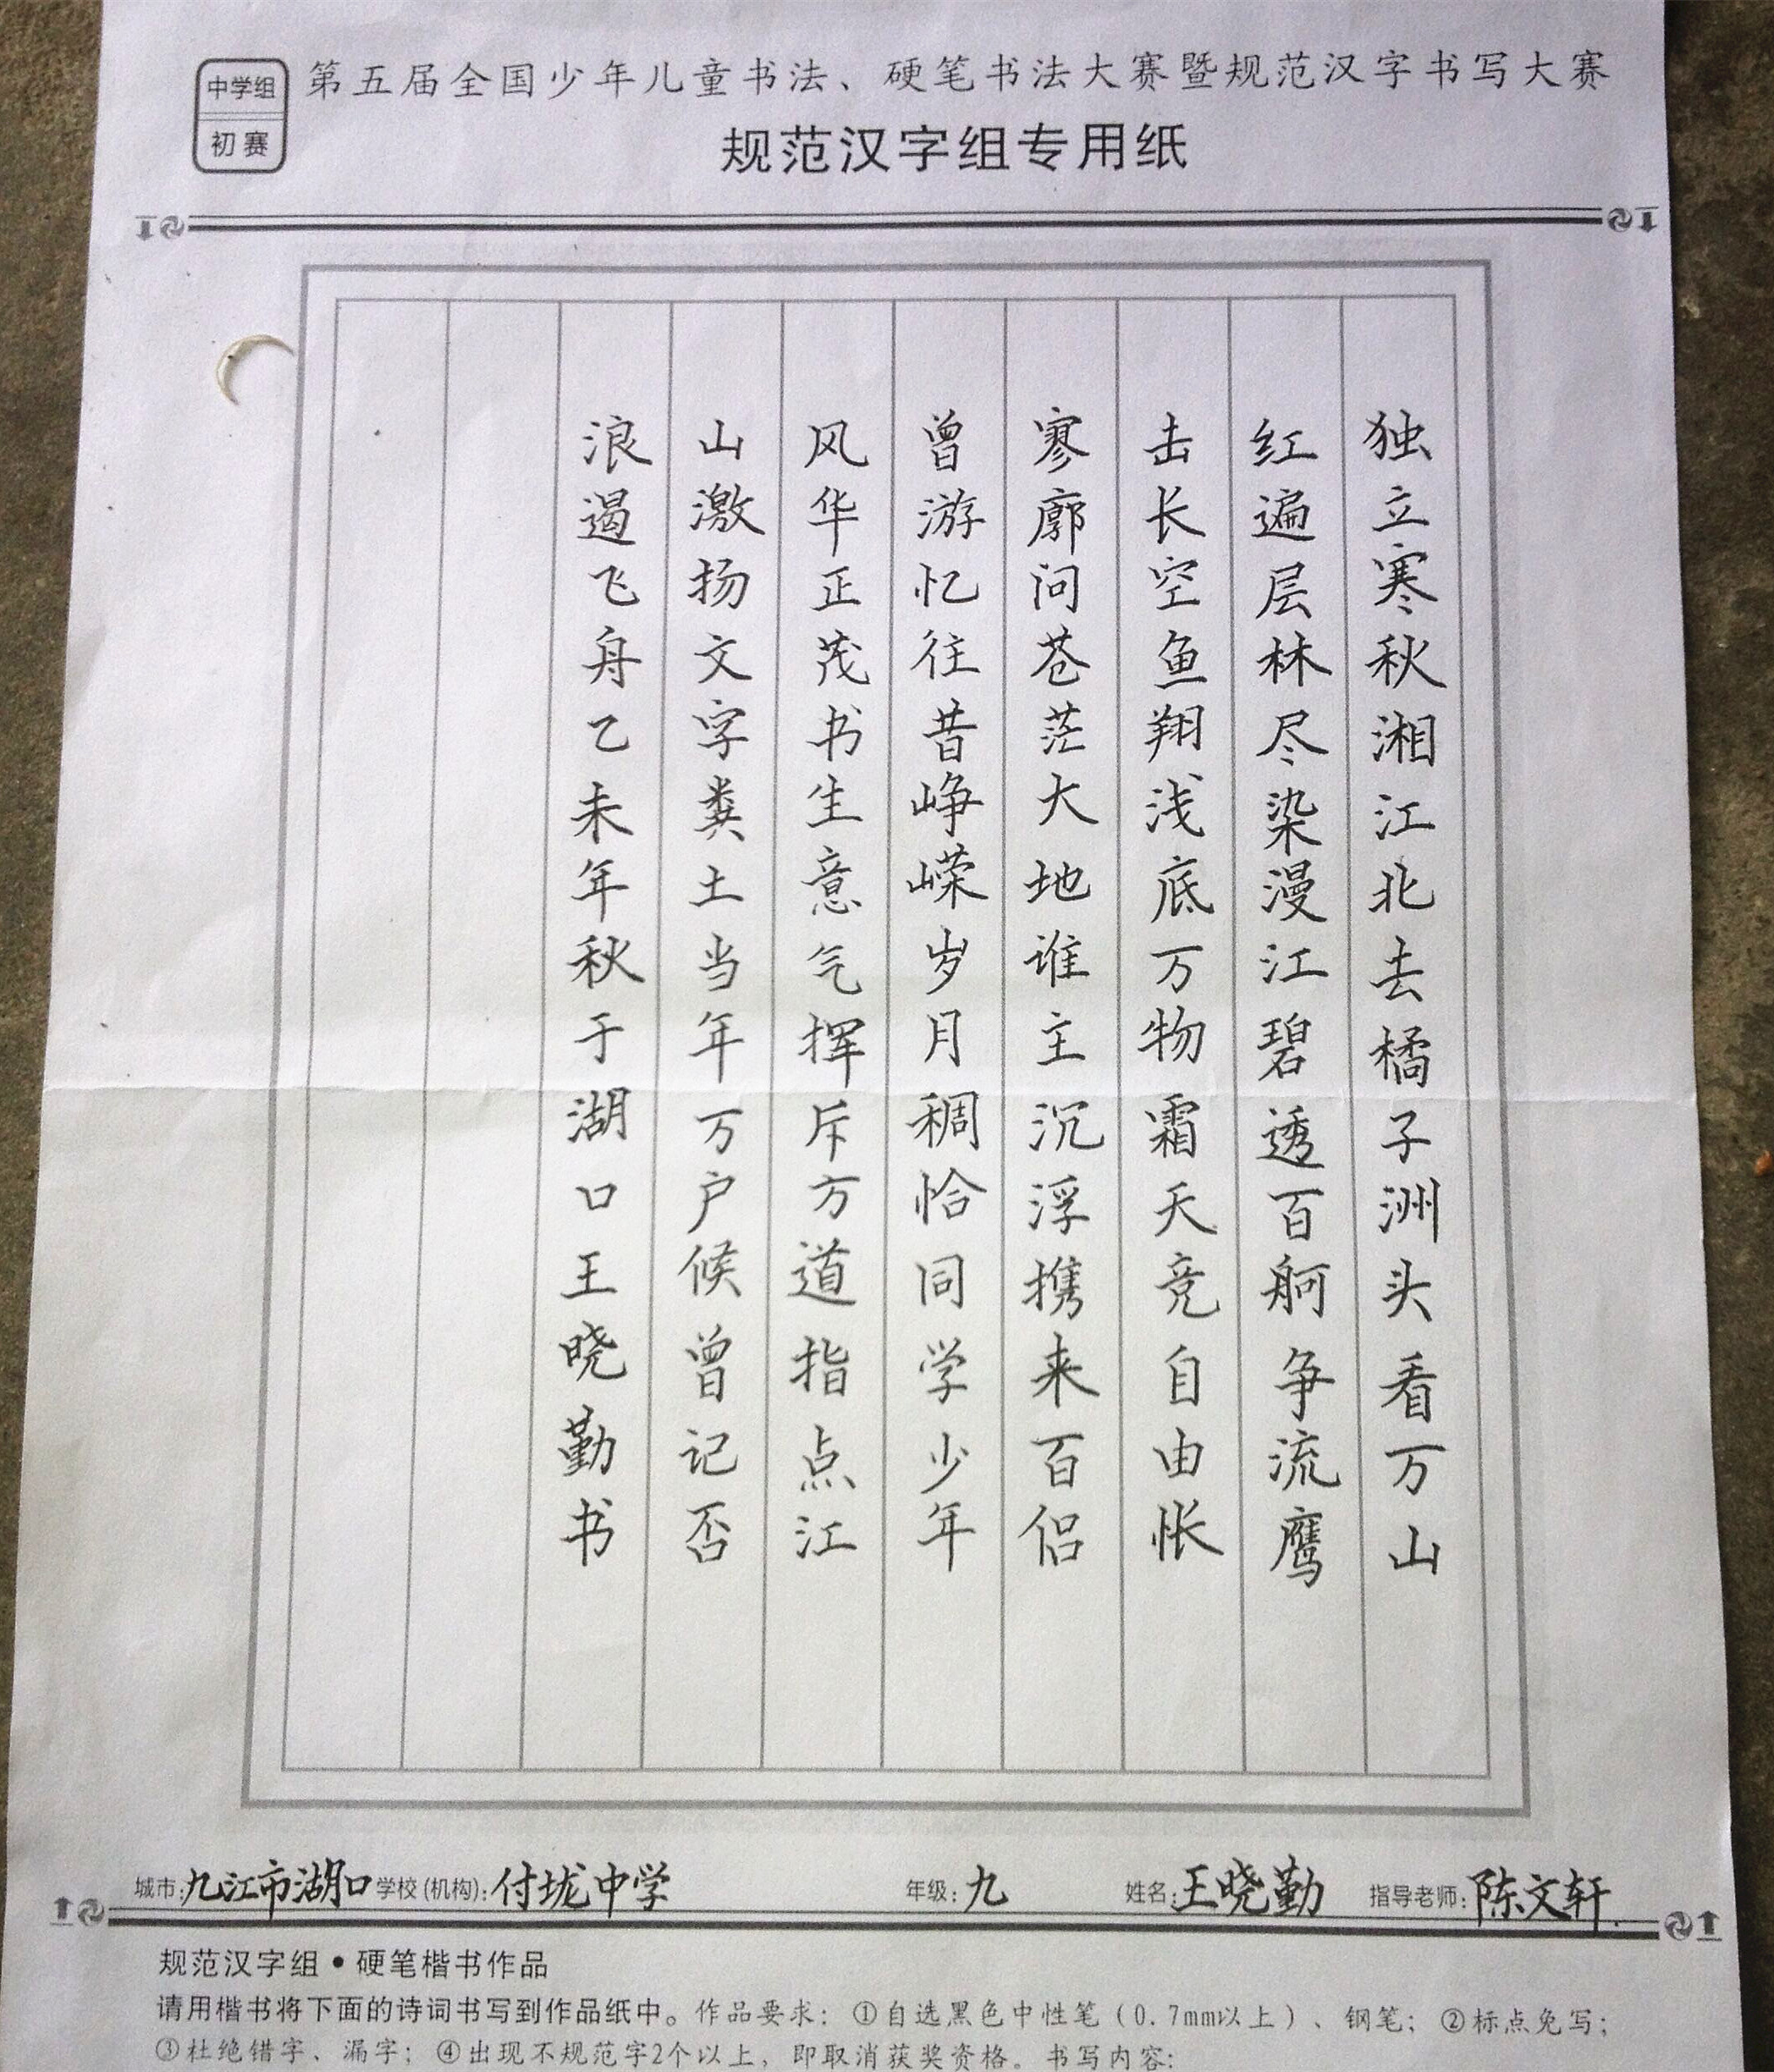 中学组
初赛
第五届全国少年儿童书法、硬笔书法大赛暨规范汉字书写大赛
规范汉字组专用纸
独立寒秋湘江北去橘子洲头看万山
红遍层林尽染漫江碧透百舸争流鹰
击长空鱼翔浅底万物霜天竞自由怅
寥廓问苍茫大地谁主沉浮携来百侣
曾游忆往昔峥嵘岁月稠恰同学少年
风华正茂书生意气挥斥方道指点江
山激扬文字粪土当年万户候曾记否
浪遏飞舟乙未年秋于湖口王晓勤书
城市:九江市湖口 学校(机构):付垅中学 年级:九 姓名:王晓勤 指导老师:陈文轩.
规范汉字组·硬笔楷书作品
请用楷书将下面的诗词书写到作品纸中。作品要求：①自选黑色中性笔（0.7mm以上）、钢笔；②标点免写；
③杜绝错字、漏字；④出现不规范字2个以上，即取消获奖资格。书写内容：